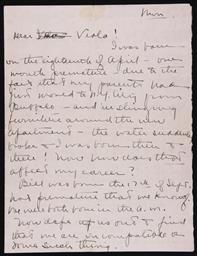 Mon
Dear Viola!
I was born
on the eighteenth of April - one
month premature - due to the
fact that my parents had
just moved to N.Y. City from
Buffalo - and in slinging
furniture around the new
apartment - the water suddenly
broke & I was born then &
there! Now how does that
affect my career?
Bill was born the 17th of Sept.
not premature that we know.
We were both born in the a.m.
Now dope us out & find
that we are incompatible or
some such thing.